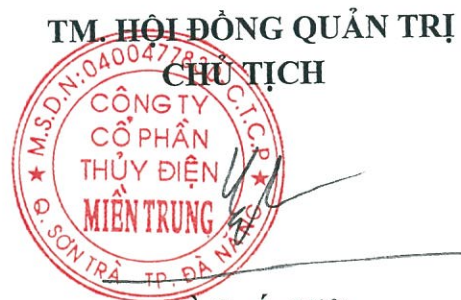 TM. HỘI ĐỒNG QUẢN TRỊ
CHỦ TỊCH
M.S.D.N:0400477830 C.T.C.P
CÔNG TY
CỔ PHẦN
THỦY ĐIỆN
MIỀN TRUNG
Q. SƠN TRÀ TP. ĐÀ NẴNG